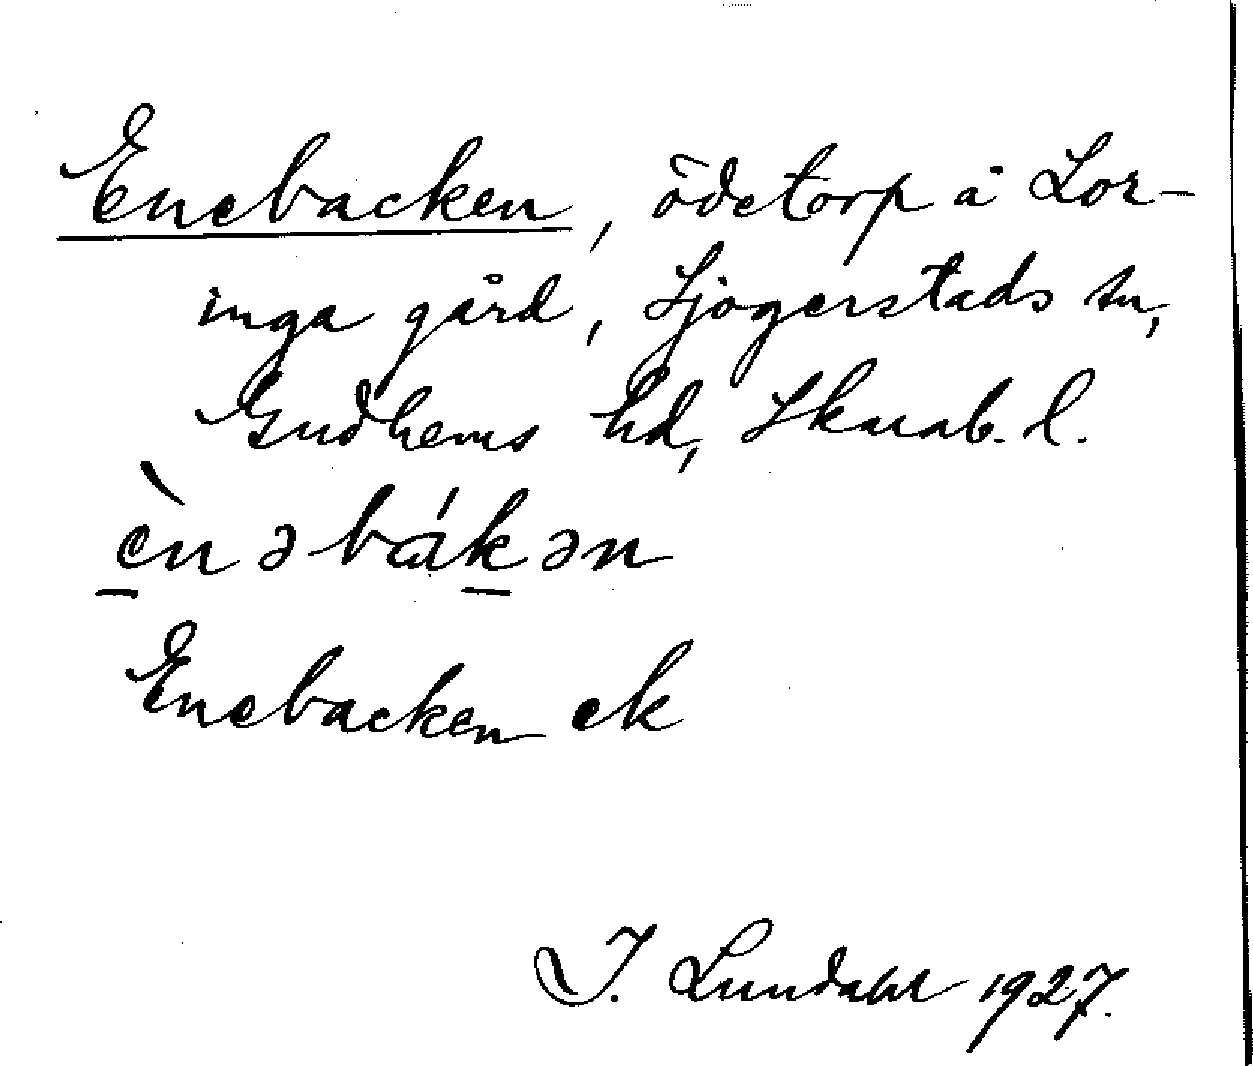 Enebacken, ödetorp å Lor-
inga gård, Sjogerstads sn,
Gudhems hd, Skarab. l.
ènəbákən
Enebacken ek
I. Lundahl 1927.